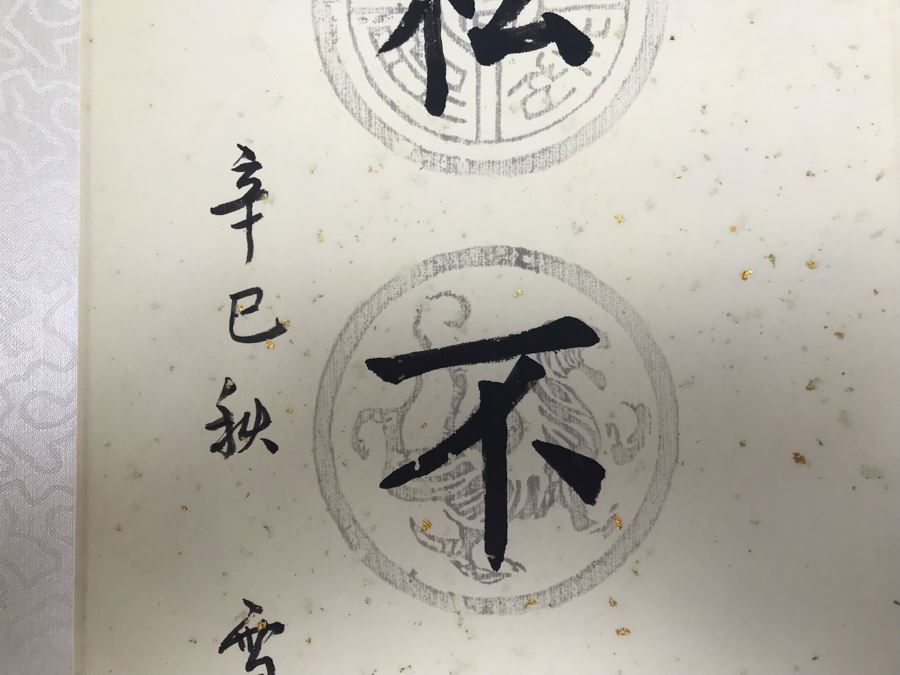 松
不
辛巳秋
雪